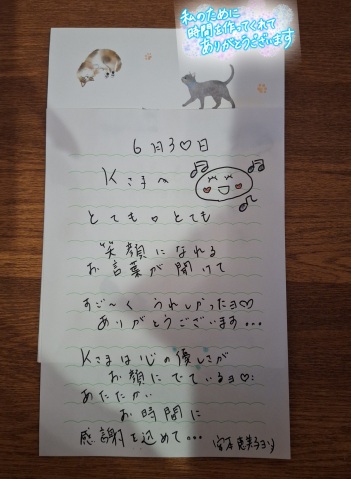 私のために
時間を作ってくれて
ありがとうございます
6月30日
Kさまへ
とても。とても
笑顔になれる
お言葉が聞けて
すご～く うれしかったョ♡
ありがとうございます...
Kさまは心の優しさが
お顔にでているョ♡:
あたたかい
お時間に
感謝を込めて...
宮本
より